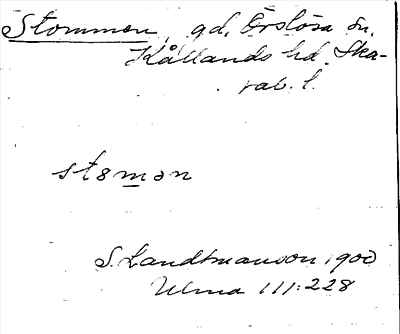 Stommen, gd, Örslösa sn,
Kållands hd. Ska-
rab. l.
stomən
S. Landtmanson 1900
Ulma 111:228